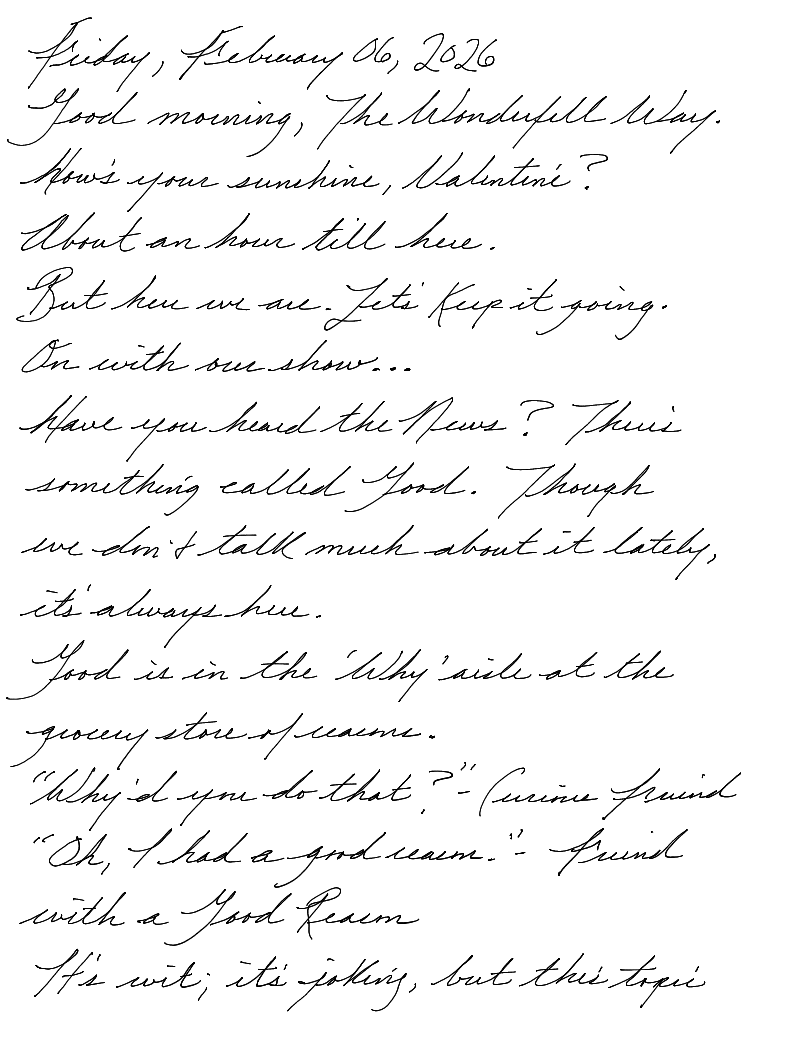 Friday, February 06, 2026
Good morning, The Wonderfell Way.
How's your sunshine, Valentine?
About an hour till here.
But here we are. Let's Keep it going.
On with our show...
Have you heard the News? There's
something called Good. Though
we don't talk much about it lately,
it's always here.
Good is in the 'Why' aisle at the
grocery store of reasons.
"Why'd you do that?"- Curious friend
"Oh, I had a good reason."- friend
with a Good Reason
It's wit; it's joking, but this topic